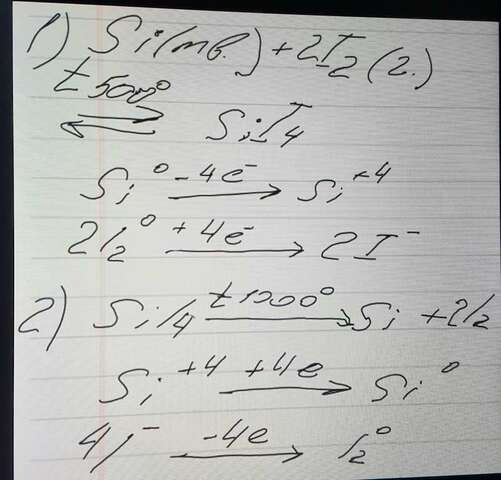 1) Si(тв.) + 2I₂(г.)
t 500°
⇄ SiI₄
Si⁰ -4e⁻ → Si⁺⁴
2I₂⁰ +4e⁻ → 2I⁻
2) SiI₄ t 1000° → Si + 2I₂
Si⁺⁴ +4e → Si⁰
4I⁻ -4e → I₂⁰